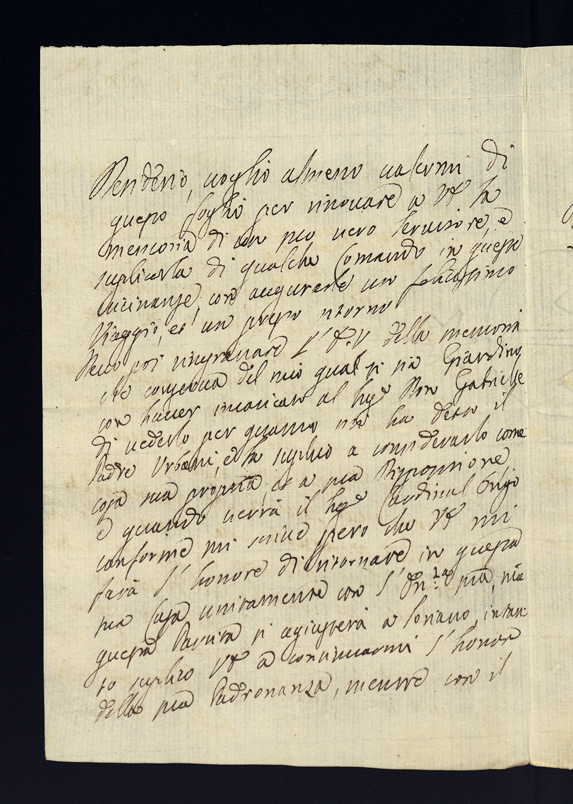 Renderio, voglio almeno valermi di
questo foglio per rinovare a VE la
memoria di un suo vero servitore, e
suplicarla di qualche comando in queste
vicinanze, con augurarle un felicissimo
Viaggio, et un presto ritorno
Devo poi ringratiare l'E.V della memoria
che conserva del mio qual si sia Giardino
con haver incaricato al Sig.r Don Gabriele
di vederlo per quanto mi ha detto il
Padre Urbani, et la suplico a considerarlo come
cosa sua propria et a sua Dispositione
e quando verrà il Sig.r Cardinal Origo
conforme mi scrive spero che VE mi
farà l'honore di ritornare in questa
sua Casa unitamente con l' sua, mà
questa partita si agiusterà a Soriano, intan
to suplico VE a continuarmi l'honore
della sua Padronanza, mentre con il